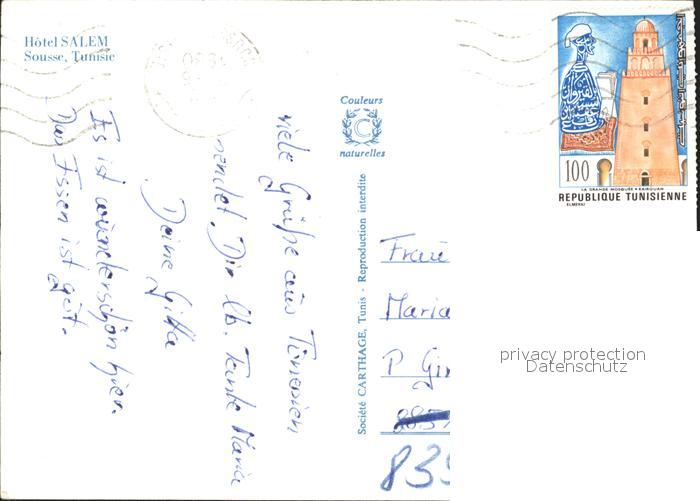 Hôtel SALEM
Sousse, Tunisie
viele Grüße aus Tunesien
sendet Dir lb. Tante Maria
Deine Gitta
Es ist wunderschön hier.
Das Essen ist gut.
Couleurs
C
naturelles
Société CARTHAGE, Tunis - Reproduction interdite
Frau
Maria
P
835
100
LA GRANDE MOSQUÉE • KAIROUAN
REPUBLIQUE TUNISIENNE
ELMEKKI
privacy protection
Datenschutz